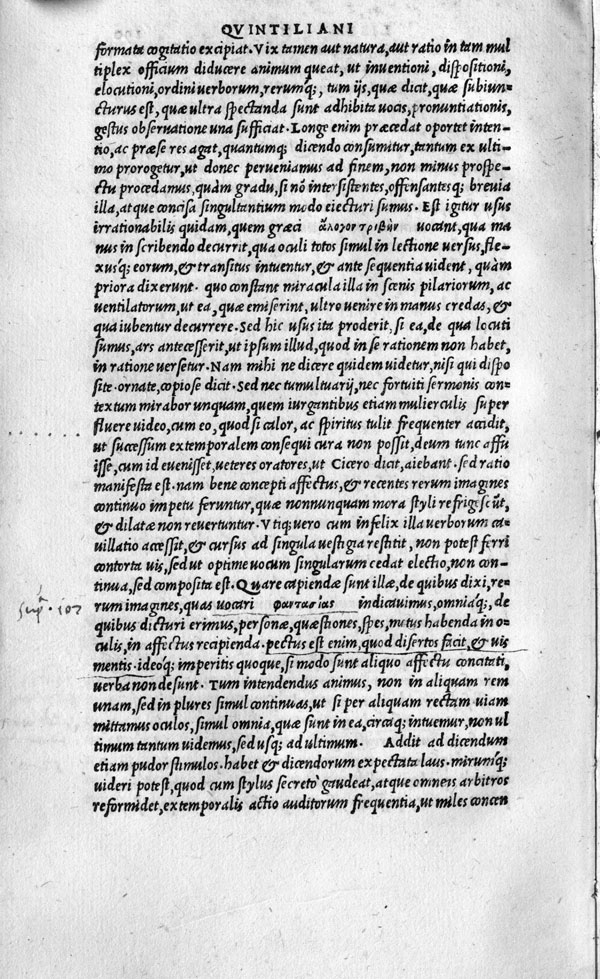 QVINTILIANI
formata cogitatio excipiat. Vix tamen aut natura, aut ratio in tam mul
tiplex officium diducere animum queat, ut inuentioni, dispositioni,
elocutioni, ordini uerborum, rerumq́;, tum ijs, quæ dicit, quæ subiun-
cturus est, quæ ultra spectanda sunt adhibita uocis, pronuntiationis,
gestus obseruatione una sufficiat. Longe enim præcedat oportet inten-
tio, ac præ se res agat, quantumq́; dicendo consumitur, tantum ex ulti-
mo prorogetur, ut donec perueniamus ad finem, non minus prospe-
ctu procedamus, quàm gradu, si nō intersistentes, offensantesq́; breuia
illa, atque concisa singultantium modo eiecturi sumus. Est igitur usus
irrationabilis quidam, quem græci ἄλογον τριβὴν uocant, qua ma
nus in scribendo decurrit, qua oculi totos simul in lectione uersus, fle-
xusq́; eorum, & transitus intuentur, & ante sequentia uident, quàm
priora dixerunt. quo constant miracula illa in scenis pilariorum, ac
uentilatorum, ut ea, quæ emiserint, ultro uenire in manus credas, &
qua iubentur decurrere. Sed hic usus ita proderit, si ea, de qua locuti
sumus, ars antecesserit, ut ipsum illud, quod in se rationem non habet,
in ratione uersetur. Nam mihi ne dicere quidem uidetur, nisi qui dispo
site. ornate, copiose dicit. Sed nec tumultuarij, nec fortuiti sermonis con-
textum mirabor unquam, quem iurgantibus etiam mulierculis super
fluere uideo, cum eo, quod si calor, ac spiritus tulit frequenter accidit,
ut successum extemporalem consequi cura non possit, deum tunc affu
isse, cum id euenisset, ueteres oratores, ut Cicero dicit, aiebant. sed ratio
manifesta est. nam bene concepti affectus, & recentes rerum imagines
continuo impetu feruntur, quæ nonnunquam mora styli refrigescūt,
& dilatæ non reuertuntur. Vtiq; uero cum infelix illa uerborum ca-
uillatio accessit, & cursus ad singula uestigia restitit, non potest ferri
contorta uis, sed ut optime uocum singularum cedat electio, non con-
tinua, sed composita est. Quare capiendæ sunt illæ, de quibus dixi, re-
rum imagines, quas uocari φαντασίας indicauimus, omniaq́;, de
quibus dicturi erimus, personæ, quæstiones, spes, metus habenda in o-
culis, in affectus recipienda. pectus est enim, quod disertos facit, & uis
mentis. ideoq́; imperitis quoque, si modo sunt aliquo affectu concitati,
uerba non desunt. Tum intendendus animus, non in aliquam rem
unam, sed in plures simul continuas, ut si per aliquam rectam uiam
mittamus oculos, simul omnia, quæ sunt in ea, circaq́; intuemur, non ul
timum tantum uidemus, sed usq; ad ultimum. Addit ad dicendum
etiam pudor stimulos. habet & dicendorum expectata laus. mirumq́;
uideri potest, quod cum stylus secreto gaudeat, atque omneis arbitros
reformidet, extemporalis actio auditorum frequentia, ut miles concen